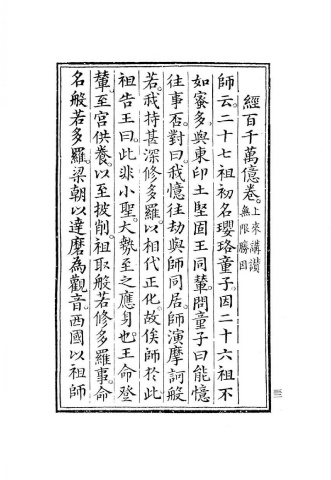 經百千萬億卷。上來講讚
無限勝因
師云。二十七祖初名瓔珞童子。因二十六祖不
如蜜多。與東印土堅固王同輦。問童子曰。能憶
往事否。對曰。我憶往劫與師同居。師演摩訶般
若。我持甚深修多羅。以相代正化。故俟師於此。
祖告王曰。此非小聖。大勢至之應身也。王命登
輦至宮供養。以至披削。祖取般若修多羅事。命
名般若多羅。梁朝以達磨為觀音。西國以祖師